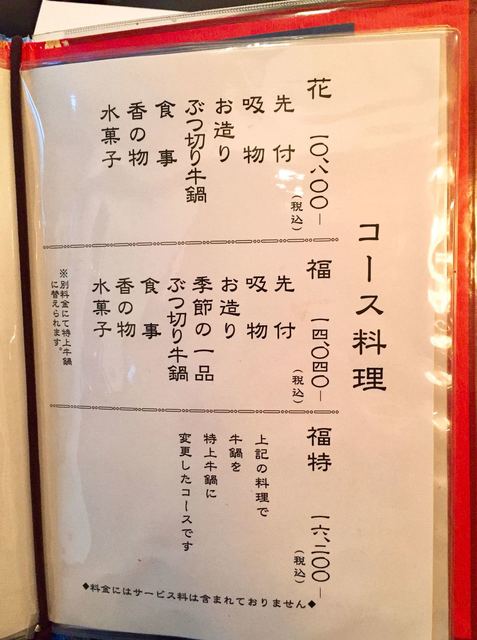 コース料理
花 一〇、八〇〇―
（税込）
先付
吸物
お造り
ぶつ切り牛鍋
食事
香の物
水菓子
福 一四、〇四〇―
（税込）
先付
吸物
お造り
季節の一品
ぶつ切り牛鍋
食事
香の物
水菓子
※別料金にて特上牛鍋
に替えられます。
福特 一六、二〇〇―
（税込）
上記の料理で
牛鍋を
特上牛鍋に
変更したコースです
◆料金にはサービス料は含まれておりません◆